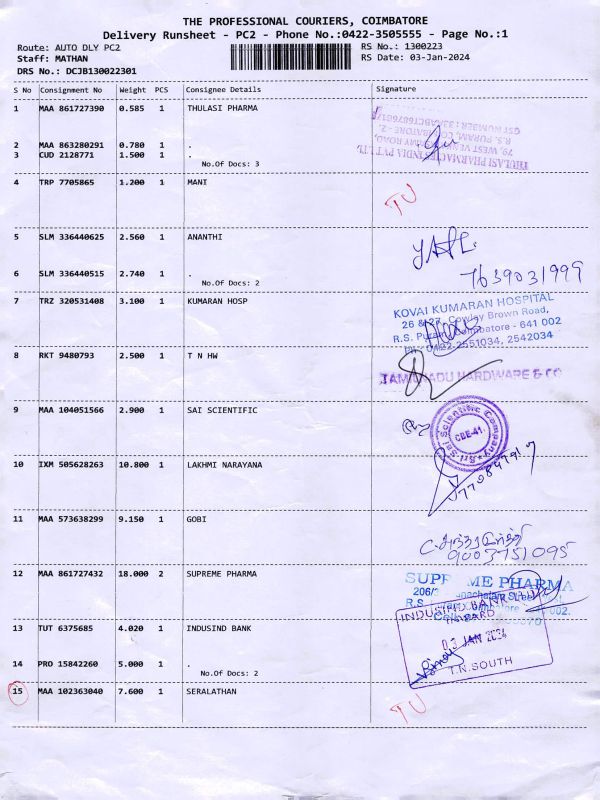 THE PROFESSIONAL COURIERS, COIMBATORE
Delivery Runsheet - PC2 - Phone No.:0422-3505555 - Page No.:1
Route: AUTO DLY PC2
RS No.: 1300223
Staff: MATHAN
RS Date: 03-Jan-2024
DRS No.: DCJB130022301
S No Consignment No Weight PCS Consignee Details Signature
1 MAA 861727390 0.585 1 THULASI PHARMA
2 MAA 863280291 0.780 1 .
3 CUD 2128771 1.500 1 .
No.Of Docs: 3
THULASI PHARMACIES INDIA PVT LTD
79, WEST
R.S. PURAM, COIMBATORE - 2.
GST NUMBER :
4 TRP 7705865 1.200 1 MANI
TU
5 SLM 336440625 2.560 1 ANANTHI
6 SLM 336440515 2.740 1 .
No.Of Docs: 2
7639031999
7 TRZ 320531408 3.100 1 KUMARAN HOSP
KOVAI KUMARAN HOSPITAL
26 & 27, Cowley Brown Road,
R.S. Puram, Coimbatore - 641 002
PH: 0422 2551034, 2542034
8 RKT 9480793 2.500 1 T N HW
TAMILNADU HARDWARE & CO
9 MAA 104051566 2.900 1 SAI SCIENTIFIC
Sri Sai Scientific Company
CBE-41.
10 IXM 505628263 10.800 1 LAKHMI NARAYANA
11 MAA 573638299 9.150 1 GOBI
9003751095
12 MAA 861727432 18.000 2 SUPREME PHARMA
SUPREME PHARMA
206/3
R.S.
13 TUT 6375685 4.020 1 INDUSIND BANK
14 PRO 15842260 5.000 1 .
No.Of Docs: 2
INDUSIND BANK LTD
03 JAN 2024
T.N.SOUTH
15 MAA 102363040 7.600 1 SERALATHAN
TU